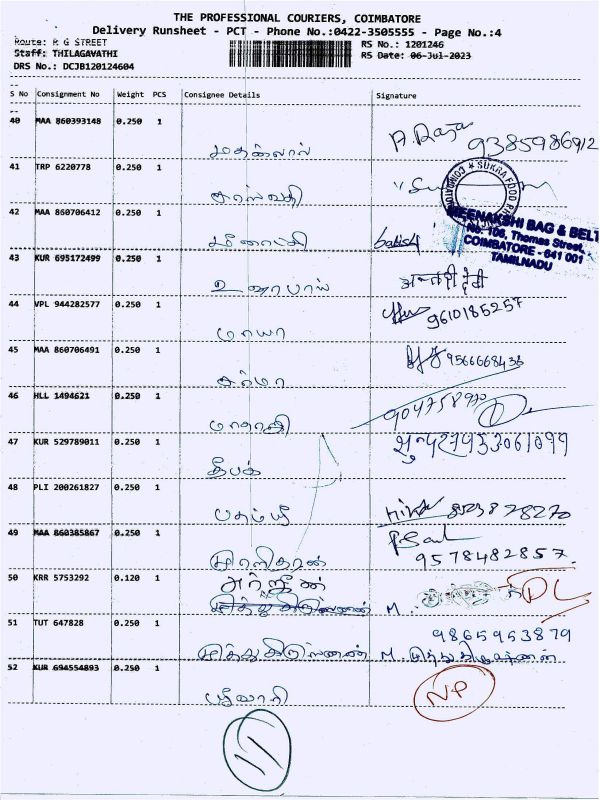 THE PROFESSIONAL COURIERS, COIMBATORE
Delivery Runsheet - PCT - Phone No.:0422-3505555 - Page No.:4
Route: R G STREET
Staff: THILAGAVATHI
DRS No.: DCJB120124604
RS No.: 1201246
RS Date: 06-Jul-2023
S No Consignment No Weight PCS Consignee Details Signature
40 MAA 860393148 0.250 1
A. Raja
9385986912
41 TRP 6220778 0.250 1
சரஸ்வதி
SUKRA FOOD
42 MAA 860706412 0.250 1
மீனாட்சி
MEENAKSHI BAG & BELT
No. 106, Thomas Street,
COIMBATORE - 641 001
TAMILNADU
43 KUR 695172499 0.250 1
44 VPL 944282577 0.250 1
மாயா
9610185257
45 MAA 860706491 0.250 1
சர்மா
9566668438
46 HLL 1494621 0.250 1
9047758970
47 KUR 529789011 0.250 1
தீபக்
48 PLI 200261827 0.250 1
49 MAA 860385867 0.250 1
முரளிதரன்
9578482857
50 KRR 5753292 0.120 1
M.
DL
51 TUT 647828 0.250 1
9865953879
முத்துகிருஸ்ணன் M. முத்துகிருஷ்ணன்
52 KUR 694554893 0.250 1
ஸ்ரீஹரி
NP
11